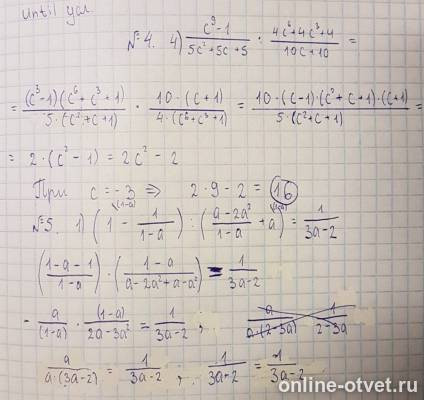 Until yar.
№4. 4) (c⁹-1)/(5c²+5c+5) : (4c⁶+4c³+4)/(10c+10) =
= (c³-1)(c⁶+c³+1)/(5·(c²+c+1)) · 10·(c+1)/(4·(c⁶+c³+1)) = 10·(c-1)·(c²+c+1)·(c+1)/(5·(c²+c+1)) =
= 2·(c²-1) = 2c²-2
При c=-3 ⇒ 2·9-2 = 16
№5. 1) (1^{\(1-a)} - 1/(1-a)) : ((a-2a²)/(1-a) + a^{\(1-a)}) = 1/(3a-2)
((1-a-1)/(1-a)) · ((1-a)/(a-2a²+a-a²)) = 1/(3a-2)
- a/(1-a) · (1-a)/(2a-3a²) = 1/(3a-2) ; a/(a·(2-3a)) 1/(2-3a)
a/(a·(3a-2)) = 1/(3a-2) ; 1/(3a-2) = 1/(3a-2)
online-otvet.ru